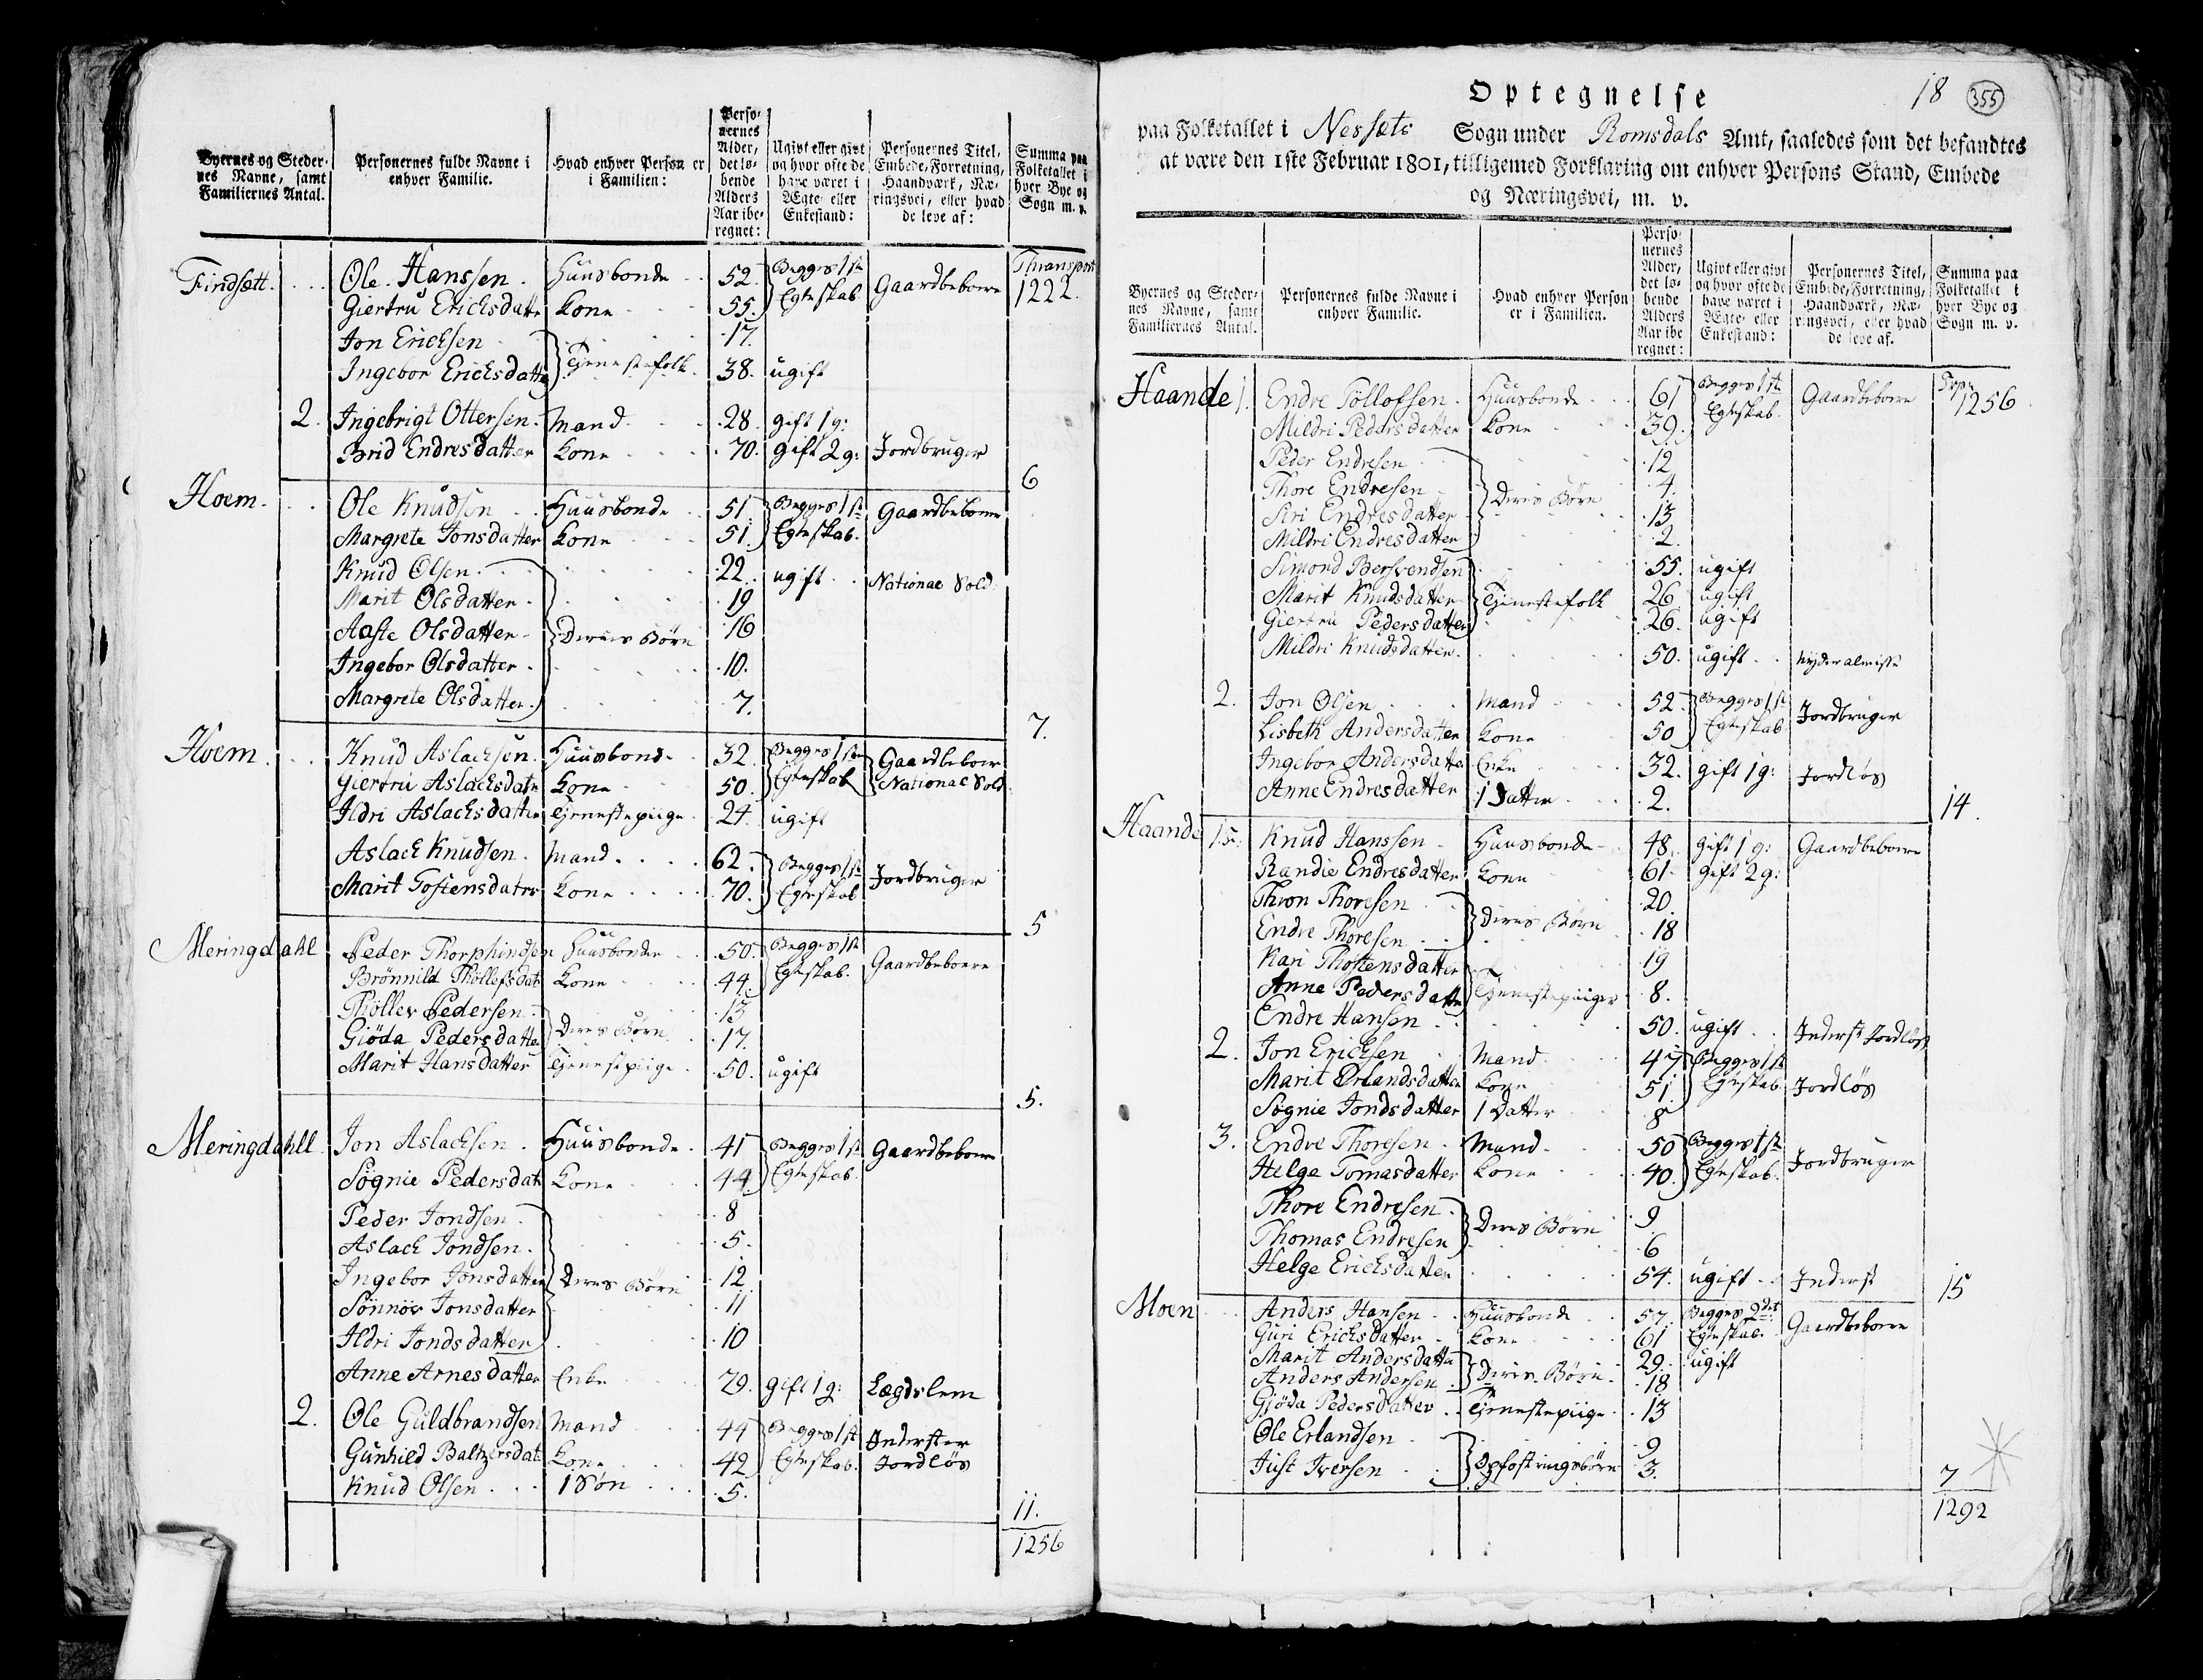 Byernes og Steder-
nes Navne, samt
Familiernes Antal.
Personernes fulde Navne i
enhver Familie.
Hvad enhver Person er
i Familien:
Perso-
nernes
Alder,
det lø-
bende
Alders
Aar ibe-
regnet:
Ugivt eller givt
og hvor ofte de
have været i
Ægte- eller
Enkestand:
Personernes Titel,
Embede, Forretning,
Haandværk, Næ-
ringsvei, eller hvad
de leve af:
Summa paa
Folketallet i
hver Bye og
Sogn m. v.
Findsætt. Ole Hanssen Huusbonde 52. Begges 1ste Egteskab Gaardbeboere Thransport 1222.
Giertru Ericksdatte Kone 55.
Jon Ericksen Tjenestefolk 17.
Ingebor Ericksdatte 38. ugift
2. Ingebrigt Ottersen Mand 28. gift 1 g:
Brid Endresdatter Kone 70. gift 2 g: Jordbruger
6
Hoem. Ole Knudsen Huusbonde 51. Begges 1ste Egteskab. Gaardbeboere
Margrete Jonsdatter Kone 51.
Knud Olsen 22. ugift National Sold.
Marit Olsdatter 19
Aaste Olsdatter Deres Børn 16
Ingebor Olsdatter 10.
Margrete Olsdatter 7.
7.
Hoem Knud Aslachsen Huusbonde 32. Begges 1ste Egteskab Gaardbeboer
Giertru Aslachsdatr Kone 50. National Sold.
Ildri Aslachsdatter Tjenestepiige 24. ugift
Aslach Knudsen Mand 62. Begges 1ste Egteskab Jordbruger
Marit Tostensdatter Kone 70.
5
Meringdahl Peder Thorphindsen Huusbonde 50. Begges 1ste Egteskab. Gaardbeboere
Brønnild Thollefsdat Kone 44.
Thollev Pedersen 13
Giöda Pedersdatter Deres Børn 17.
Marit Hansdatter Tjenestpiige 50. ugift
5.
Meringdahll Jon Aslachsen Huusbonde 41 Begges 1ste Egteskab. Gaardbeboere
Søgnie Pedersdat Kone 44
Peder Jondsen 8
Aslach Jondsen 5.
Ingebor Jonsdatter Deres Børn 12
Sönnöv Jonsdatter 11
Ildri Jondsdatter 10
Anne Arnesdatter Enke 79. gift 1 g: Lægdslem
2. Ole Guldbrandsen Mand 44 Begges 1st Egteskab. Inderster
Gunhild Baltzersdat Kone 42 Jordløs
Knud Olsen 1 Søn 5.
11.
1256
Optegnelse 18 355
paa Folketallet i Nessets Sogn under Romsdals Amt, saaledes som det befandtes
at være den 1ste Februar 1801, tilligemed Forklaring om enhver Persons Stand, Embede
og Næringsvei, m. v.
Byernes og Steder-
nes Navne, samt
Familiernes Antal.
Personernes fulde Navne i
enhver Familie.
Hvad enhver Person
er i Familien.
Perso-
nernes
Alder,
det lø-
bende
Alders
Aar ibe
regnet:
Ugivt eller givt
og hvor ofte de
have været i
Ægte- eller
Enkestand:
Personernes Titel,
Embede, Forretning,
Haandværk, Næ-
ringsvei, eller hvad
de leve af.
Summa paa
Folketallet i
hver Bye og
Sogn m. v.
Haande 1. Endre Töllofsen Huusbonde 61 Begges 1ste Egteskab. Gaardbeboere 1256
Mildri Pedersdatter Kone 39.
Peder Endresen 12
Thore Endresen Deres Børn 4.
Siri Endresdatter 13
Mildri Endresdatter 2.
Simond Bersvendsen 55. ugift
Marit Knudsdatter Tjenestefolk 26 ugift
Giertru Pedersdatter 26. ugift
Mildri Knudsdatter 50. ugift nyder almisse
2. Jon Olsen Mand 52 Begges 1ste Egteskab Jordbruger
Lisbeth Andersdatter Kone 50
Ingebor Andersdatter Enke 32. gift 1 g: Jordløs
Anne Endresdatter 1 Datter 2.
14.
Haande 1ste Knud Hanssen Huusbonde 48. gift 1 g: Gaardbeboere
Randie Endresdatter Kone 61. gift 2 g:
Thron Thoresen 20.
Endre Thoresen Deres Børn 18
Kari Thostensdatter 19
Anne Pedersdatter Tjenestepiiger 8.
Endre Hansen 50. ugift Inderst Jordløs
2. Jon Ericksen Mand 47 Begges 1ste Egteskab Jordløs
Marit Erlandsdatter Kone 51.
Søgnie Jondsdatter 1 Datter 8
3. Endre Thoresen Mand 50 Begges 1ste Egteskab. Jordbruger
Helge Tomasdatter Kone 40.
Thore Endresen Deres Børn 9
Thomas Endresen 6
Helge Ericksdatter 54. ugift Inderst
15
Moen Anders Hansen Huusbonde 57. Begges 2det Egteskab. Gaardbeboere
Guri Ericksdatter Kone 61
Marit Andersdatter Deres Børn 29. ugift
Anders Andersen 18
Gjöda Pedersdatter Tjenestepiige 13
Ole Erlandsen Opfostringsbørn 9
Just Iversen 3.
7
1292